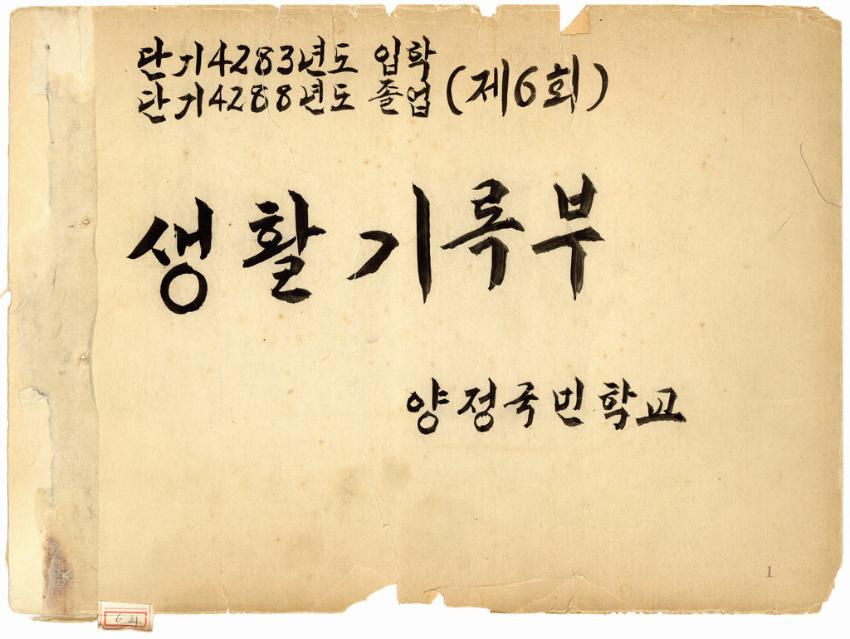 단기4283년도 입학
단기4288년도 졸업 (제6회)
생활기록부
양정국민학교
1
6회